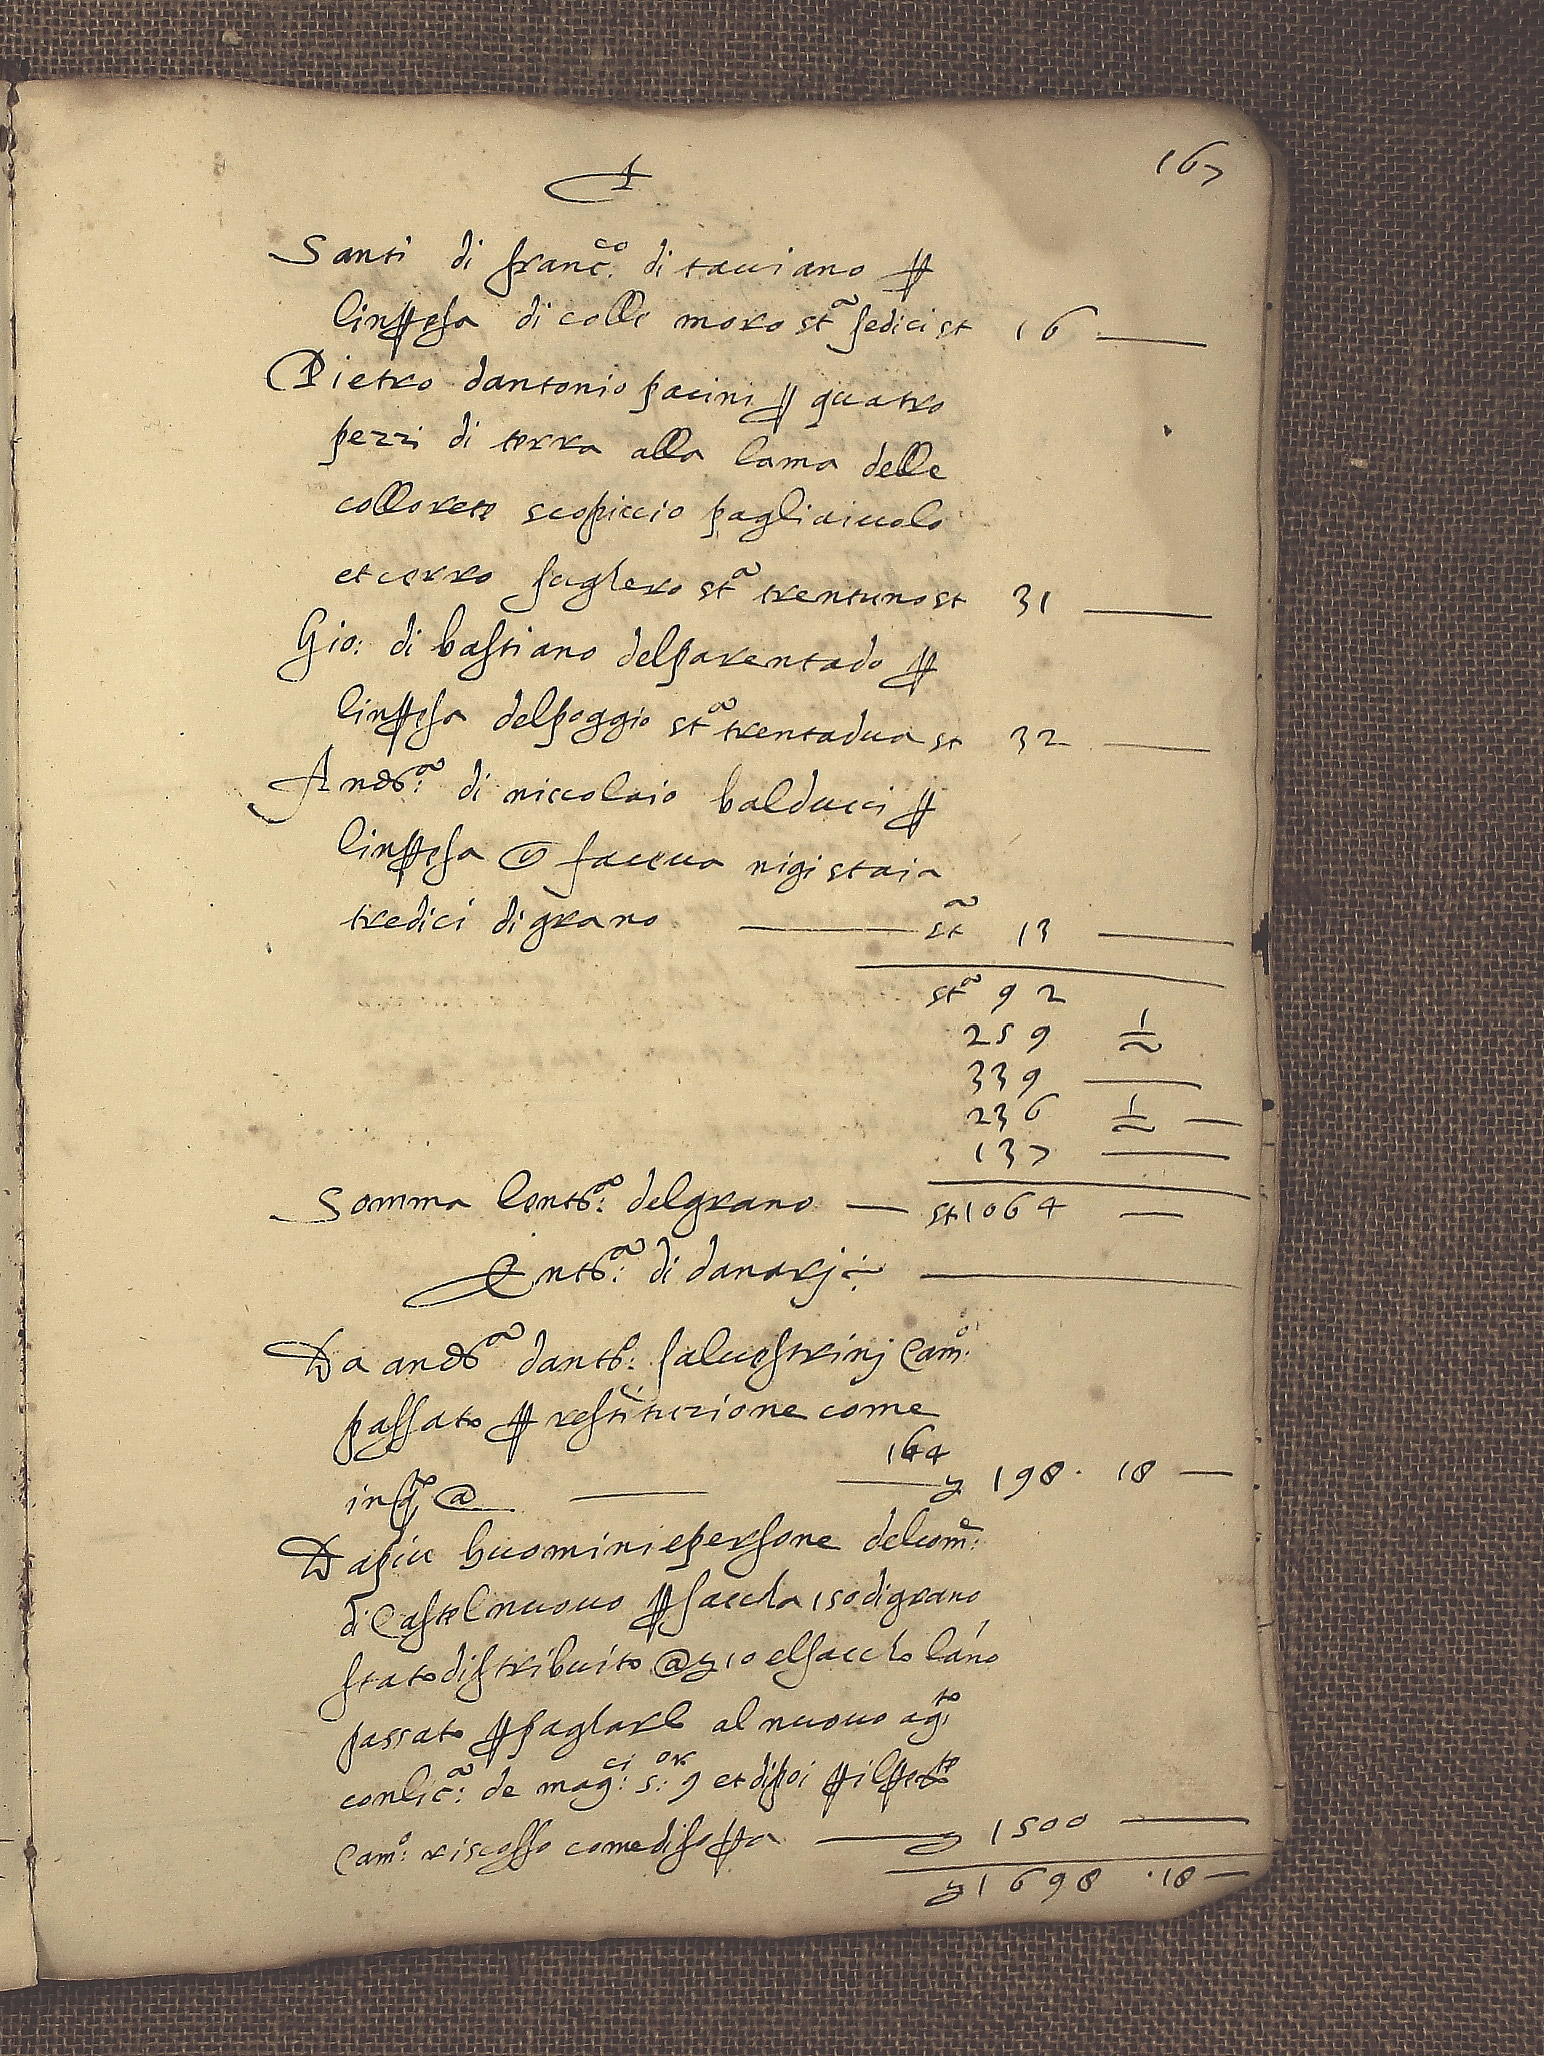 167
Santi di franc.co di tacciano p
linpresa di colle moro sta sedici st 16
Pietro dantonio pacini p quatro
pezzi di terra alla lama delle
collorete scopiccio pagliaiuolo
et cerro sughero sta trentuno st 31
Gio: di bastiano del parentado p
linpresa del poggio sta trentadua st 32
Andr:a di niccolaio balducci p
linpresa faccua nigi staia
tredici di grano sta 13
sta 92
259 1/2
339
236 1/2
137
Somma lentr:a del grano st 1064
Entr:a di danarj
Da andr.a dant.o: saluestrinj Cam:o
passato p restituzione come
in q.o @ 164 198 · 18
Da piu huomini e persone del com:e
di Castelnuouo p saccha 150 di grano
stato distribuito @ 10 el saccho lano
passato p pagharlo al nuouo ag.to
con lic:a de mag:ci s:or 9 et di poi p il
Cam:o riscosso come di sopra 1500
1698 · 18